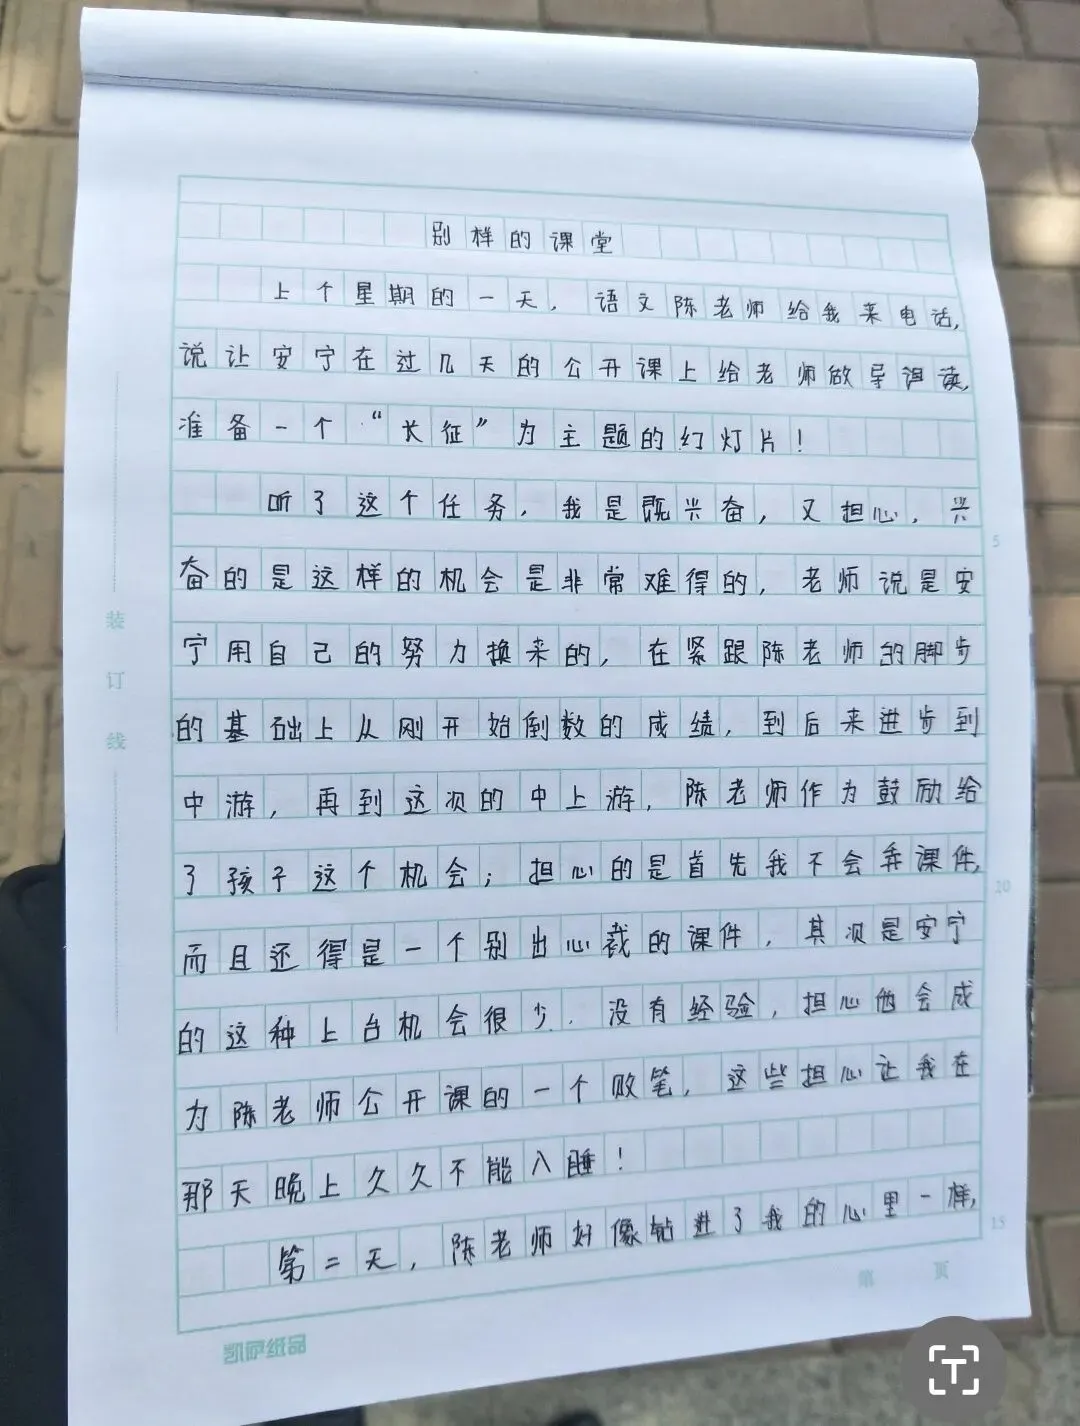 别样的课堂
上个星期的一天，语文陈老师给我来电话，
说让安宁在过几天的公开课上给老师做导诵读，
准备一个“长征”为主题的幻灯片！
听了这个任务，我是既兴奋，又担心，兴
奋的是这样的机会是非常难得的，老师说是安
宁用自己的努力换来的，在紧跟陈老师的脚步
的基础上从刚开始倒数的成绩，到后来进步到
中游，再到这次的中上游，陈老师作为鼓励给
了孩子这个机会；担心的是首先我不会弄课件，
而且还得是一个别出心裁的课件，其次是安宁
的这种上台机会很少．没有经验，担心他会成
为陈老师公开课的一个败笔，这些担心让我在
那天晚上久久不能入睡！
第二天，陈老师好像钻进了我的心里一样，
装
订
线
5
10
15
第 页
凯萨纸品